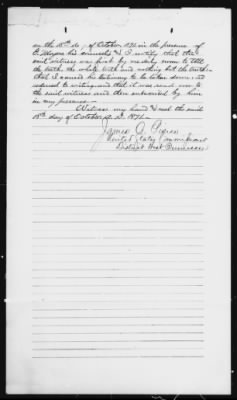 on the 18th day of October 1871 in the presence of
E. Moyers his counsel & I certify that the
said witness was first by me duly sworn to tell
the truth the whole truth and nothing but the truth
that I caused his testimony to be taken down and
reduced to writing and that it was read over to
the said witness and then subscribed by him
in my presence.
Witness my hand & seal the said
18th day of October A.D. 1871.
James O. Pierce
United States Commissioner
District West Tennessee